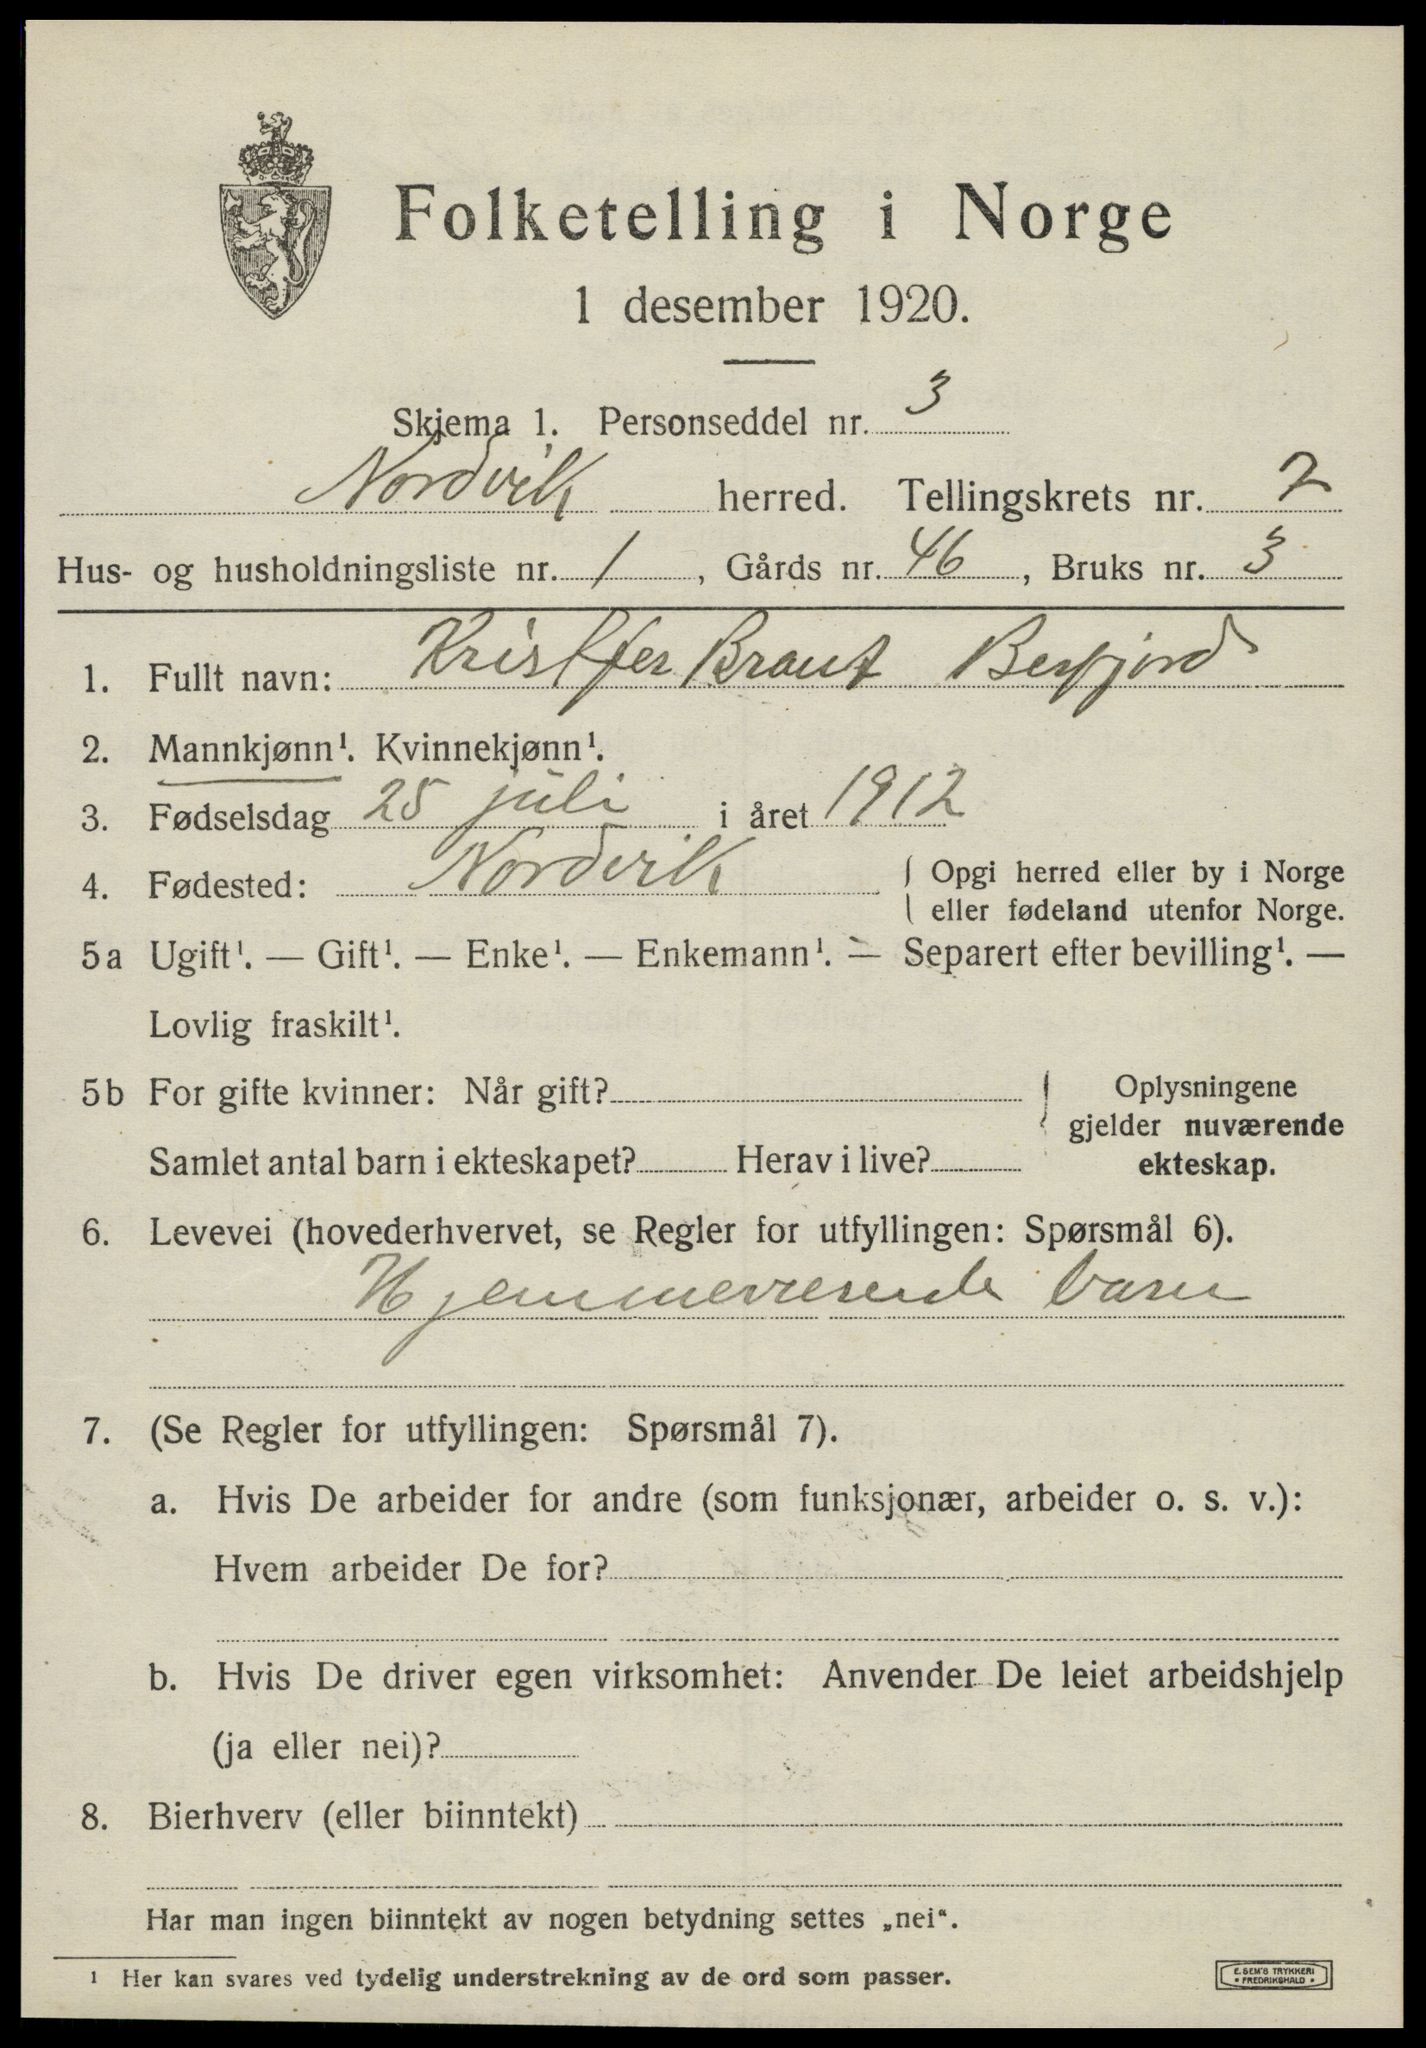 Folketelling i Norge
1 desember 1920.
Skjema 1. Personseddel nr. 3
Nordvik herred. Tellingskrets nr. 2
Hus- og husholdningsliste nr. 1, Gårds nr. 46, Bruks nr. 3
1. Fullt navn: Kristffer Braut Besfjord
2. Mannkjønn¹. Kvinnekjønn¹.
3. Fødselsdag 25 juli i året 1912
4. Fødested: Nordvik { Opgi herred eller by i Norge
eller fødeland utenfor Norge.
5a Ugift¹. — Gift¹. — Enke¹. — Enkemann¹. — Separert efter bevilling¹. —
Lovlig fraskilt¹.
5b For gifte kvinner: Når gift? } Oplysningene
gjelder nuværende
Samlet antal barn i ekteskapet? Herav i live? ekteskap.
6. Levevei (hovederhvervet, se Regler for utfyllingen: Spørsmål 6).
Hjemmeværende barn
7. (Se Regler for utfyllingen: Spørsmål 7).
a. Hvis De arbeider for andre (som funksjonær, arbeider o. s. v.):
Hvem arbeider De for?
b. Hvis De driver egen virksomhet: Anvender De leiet arbeidshjelp
(ja eller nei)?
8. Bierhverv (eller biinntekt)
Har man ingen biinntekt av nogen betydning settes „nei“.
¹ Her kan svares ved tydelig understrekning av de ord som passer.
E. SEM'S TRYKKERI
• FREDRIKSHALD •